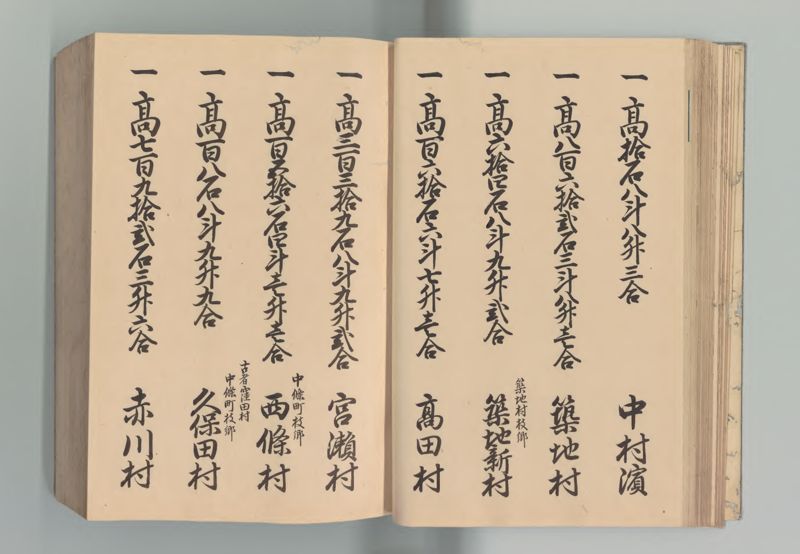 一 高拾石八斗八升三合 中村濱
一 高八百六拾弐石三斗八升壱合 築地村
築地村枝郷
一 高六拾四石八斗九升弐合 築地新村
一 高百六拾石六斗七升壱合 高田村
一 高三百三拾九石八斗九升弐合 宮瀬村
中條町枝郷
一 高百六拾六石四斗壱升壱合 西條村
古者窪田村
中條町枝郷
一 高百八石八斗九升九合 久保田村
一 高七百九拾弐石三升六合 赤川村